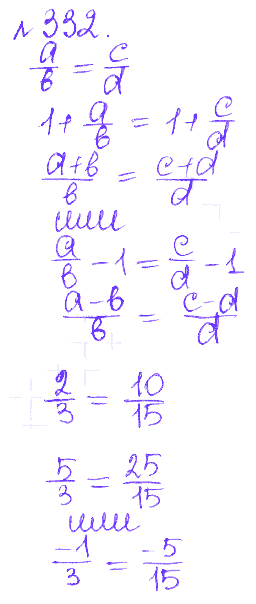 №332.
a/b = c/d
1 + a/b = 1 + c/d
(a+b)/b = (c+d)/d
или
a/b - 1 = c/d - 1
(a-b)/b = (c-d)/d
2/3 = 10/15
5/3 = 25/15
или
-1/3 = -5/15